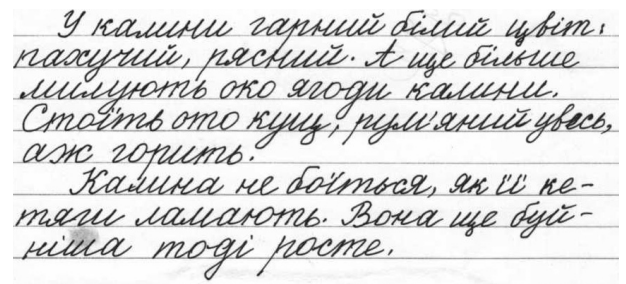 У калини гарний білий цвіт:
пахучий, рясний. А ще більше
милують око ягоди калини.
Стоїть ото кущ, рум'яний увесь,
аж горить.
Калина не боїться, як її ке-
тяги ламають. Вона ще буй-
ніша тоді росте.